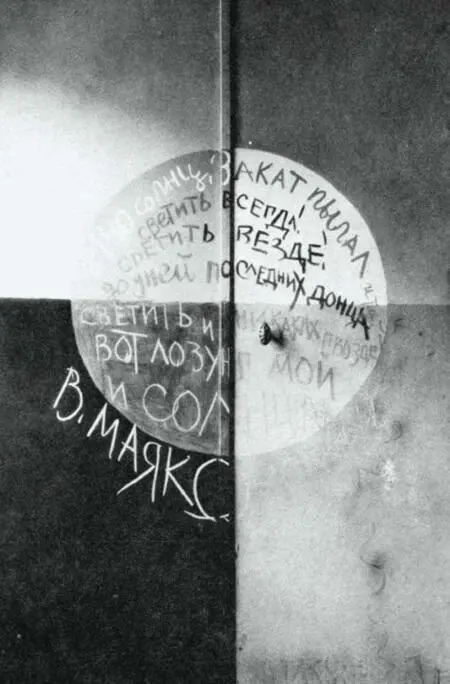 СОЛНЦ. ЗАКАТ ПЫЛАЛ
СВЕТИТЬ ВСЕГДА!
СВЕТИТЬ ВЕЗДЕ!
ДО ДНЕЙ ПОСЛЕДНИХ ДОНЦА
СВЕТИТЬ И НИКАКИХ ГВОЗДЕ
ВОТ ЛОЗУНГ МОЙ
И СОЛНЦА
В. МАЯКС